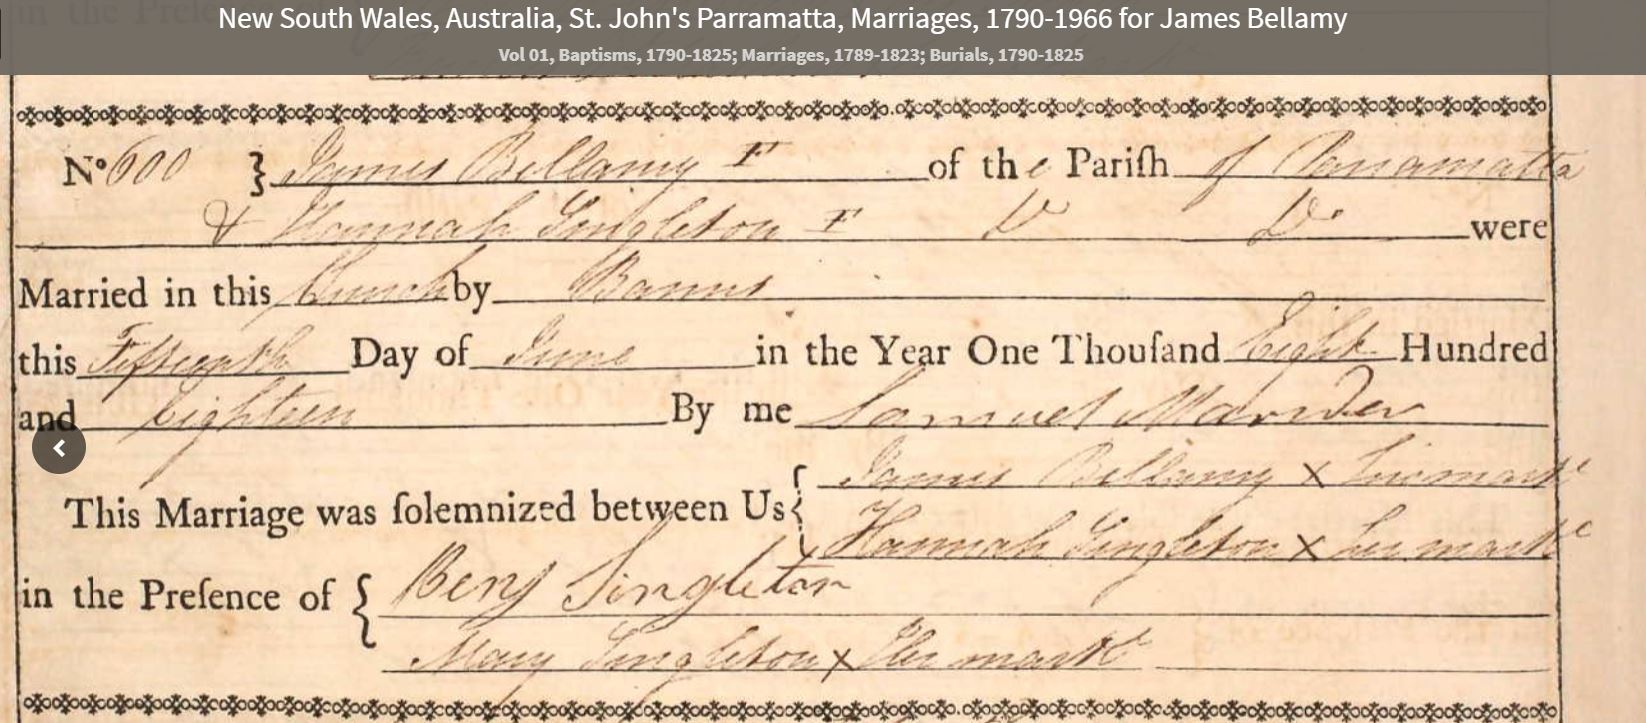 New South Wales, Australia, St. John's Parramatta, Marriages, 1790-1966 for James Bellamy
Vol 01, Baptisms, 1790-1825; Marriages, 1789-1823; Burials, 1790-1825
No 600 } James Bellamy F of the Pariſh of Parramatta
& Hannah Singleton F Do Do were
Married in this Church by Banns
this Fifteenth Day of June in the Year One Thouſand Eight Hundred
and Eighteen By me Samuel Marsden
James Bellamy X his mark
This Marriage was ſolemnized between Us {
Hannah Singleton X her mark
Benj Singleton
in the Preſence of {
Mary Singleton X Her mark